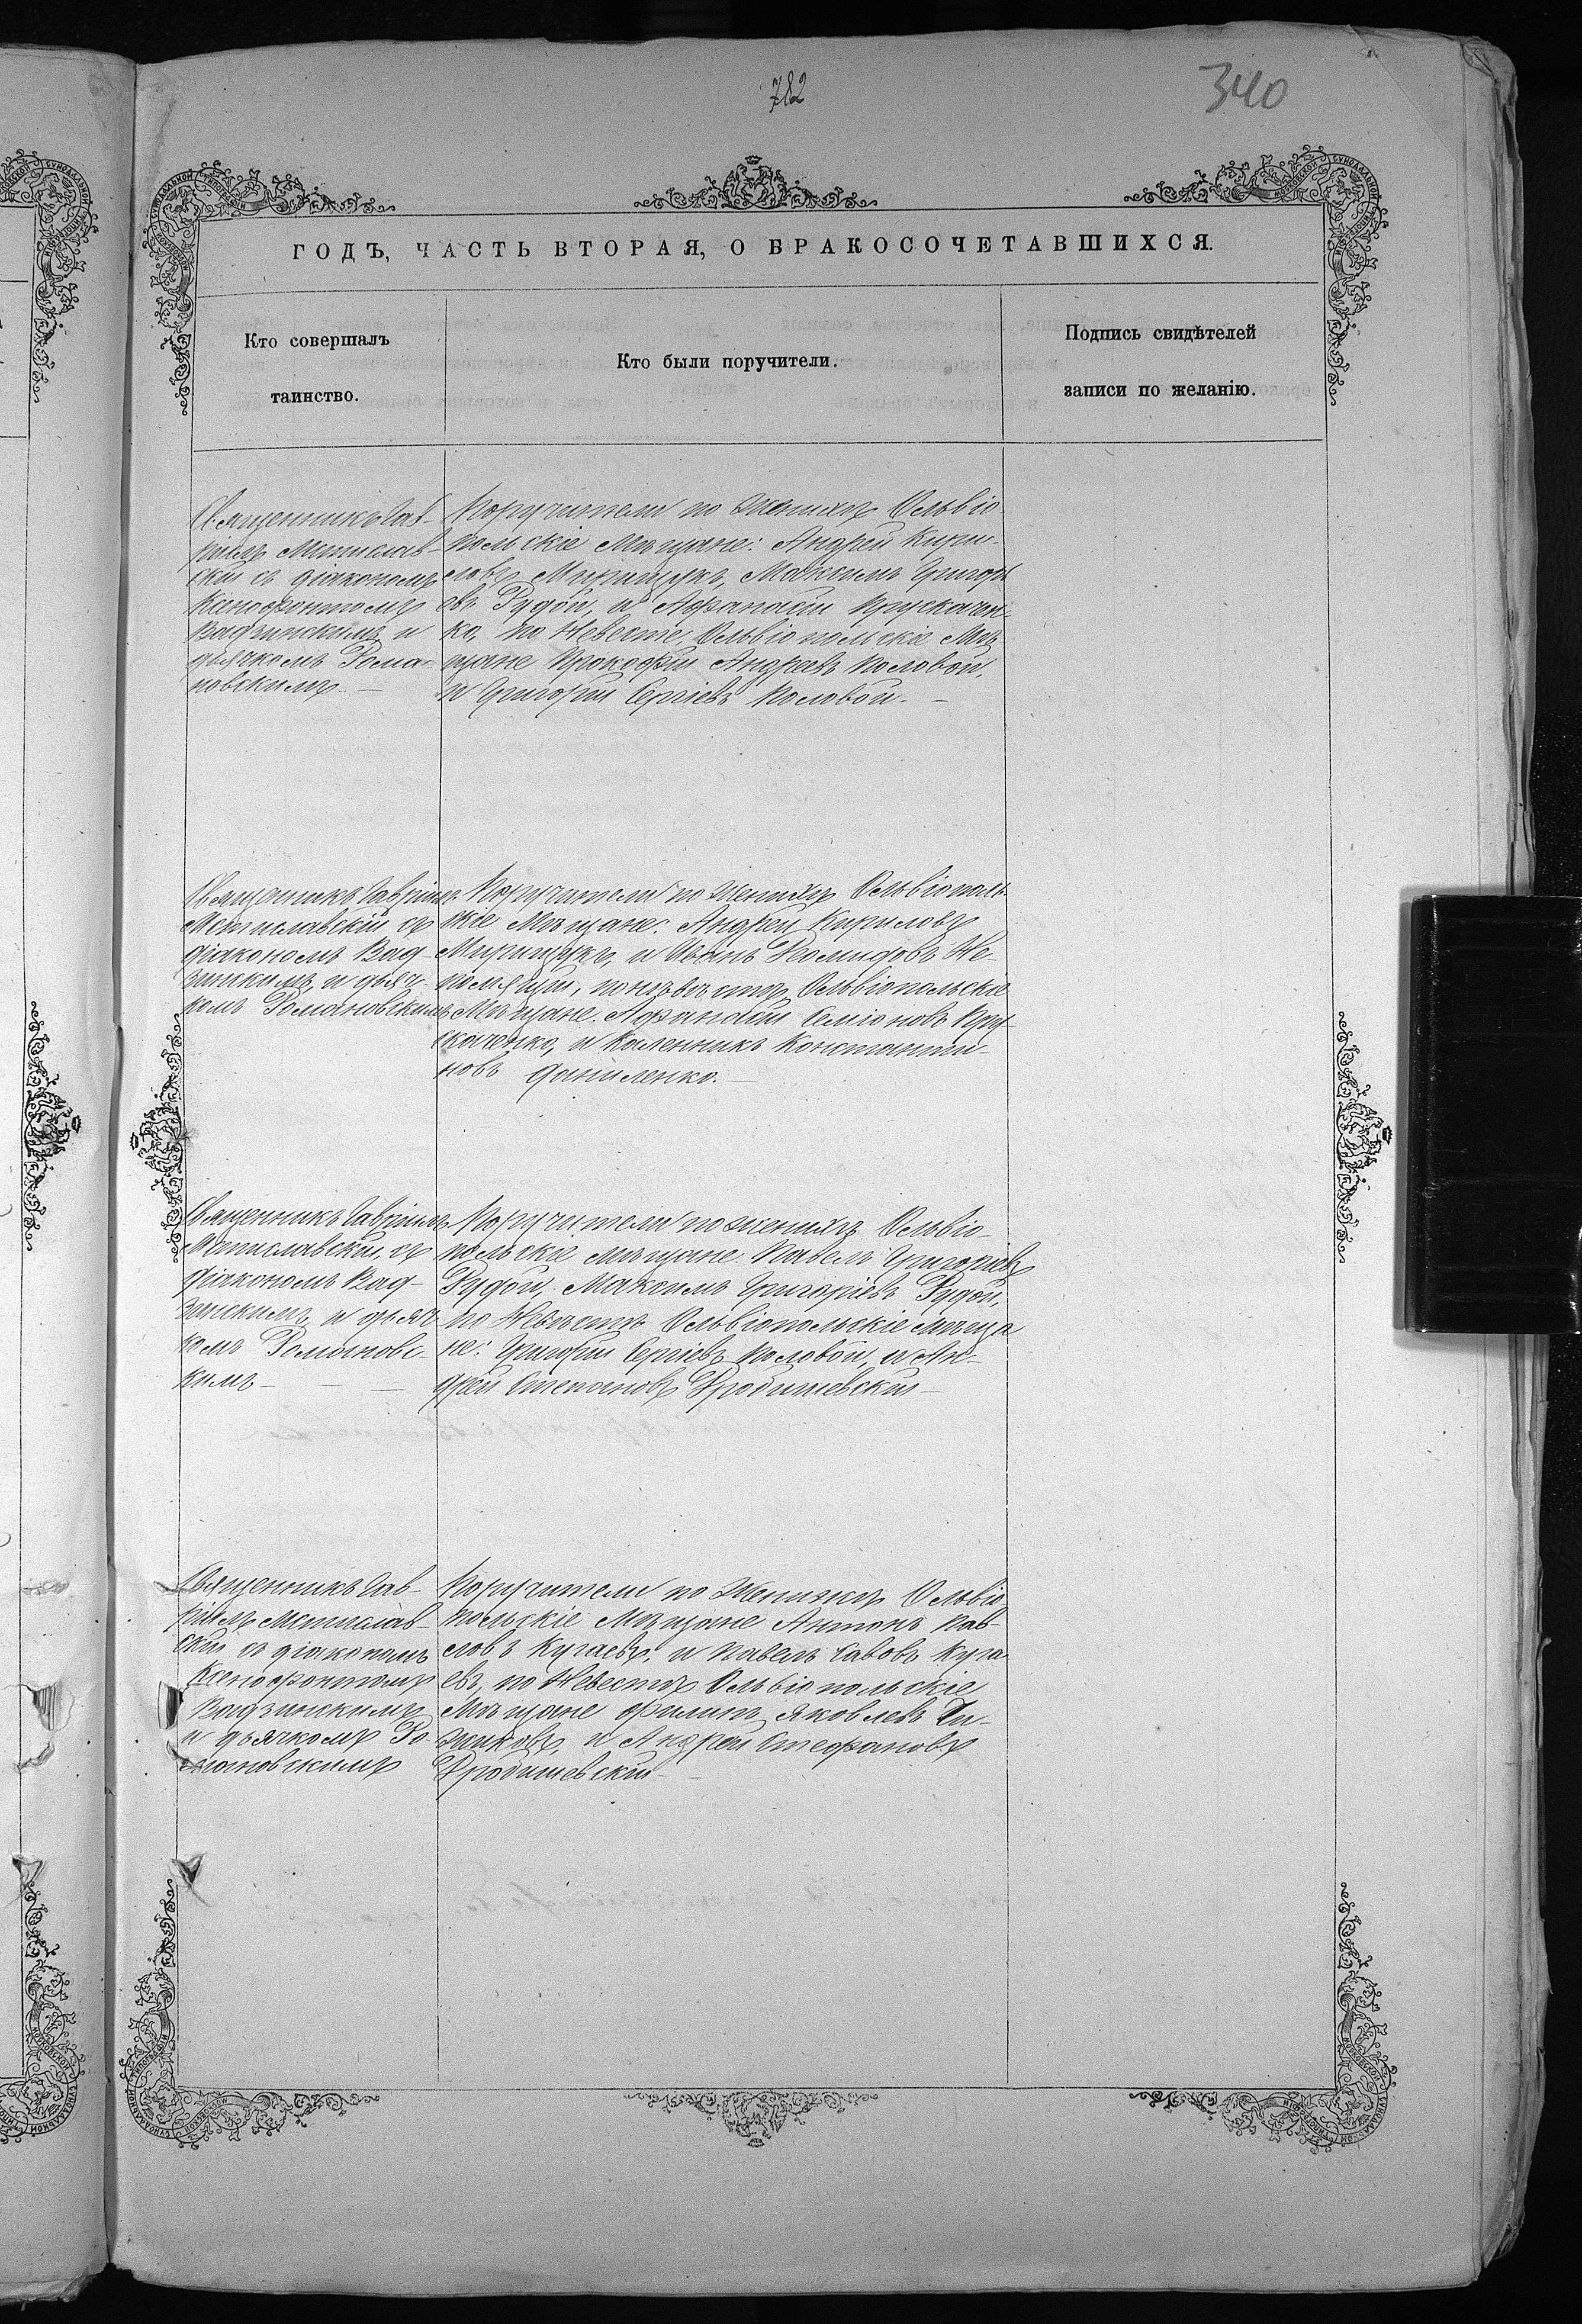 782
340
ГОДЪ, ЧАСТЬ ВТОРАЯ, О БРАКОСОЧЕТАВШИХСЯ.
Кто совершалъ
таинство.
Кто были поручители.
Подпись свидѣтелей
записи по желанію.
Священникъ Гав-
ріилъ Мстислав-
скій съ діакономъ
Вадзинскимъ и
дьячкомъ Рома-
новскимъ
Поручители по Женихѣ Ольвіо-
польскіе Мѣщане: Андрей Кири-
ловъ Мирищукъ, Максимъ Григорь
евъ Рудой, и Афанасій Прускачен-
ко, по Невестѣ, Ольвіопольскіе Мѣ
щане Прокофій Андреевъ Половой,
и Григорій Сергіевъ Половой.
Священникъ Гавріилъ
Мстиславскій съ
діакономъ Вад-
зинскимъ и дьяч-
комъ Романовскимъ
Поручители по Женихѣ Ольвіополь
скіе Мѣщане: Андрей Кириловъ
Мирищукъ, и Иванъ Не-
по невѣстѣ Ольвіопольскіе
Мѣщане: Афанасій Семіоновъ Пру-
скаченко, и Каленникъ Константи-
новъ Даниленко.
Священникъ Гавріилъ
Мстиславскій, съ
діакономъ Вад-
зинскимъ, и дьяч
комъ Романовс-
кимъ
Поручители по женихѣ Ольвіо-
польскіе мѣщане: Павелъ Григоріевъ
Рудой, Максимъ Григоріевъ Рудой,
по Невѣстѣ Ольвіопольскіе мѣща
не: Григорій Сергіевъ Половой, и Ан-
дрей Степановъ Дробишевскій
Священникъ Гав-
ріилъ Мстислав-
скій съ діакономъ
Ксенофонтомъ
Вадзинскимъ
и дьячкомъ Ро-
мановскимъ
Поручители по Женихѣ Ольвіо
польскіе Мѣщане Антонъ Пав-
ловъ Кугаевъ, и Павелъ Савовъ Куга
евъ, по Невестѣ Ольвіопольскіе
Мѣщане Филипъ Яковлевъ
и Андрей Стефановъ
Дробишевскій